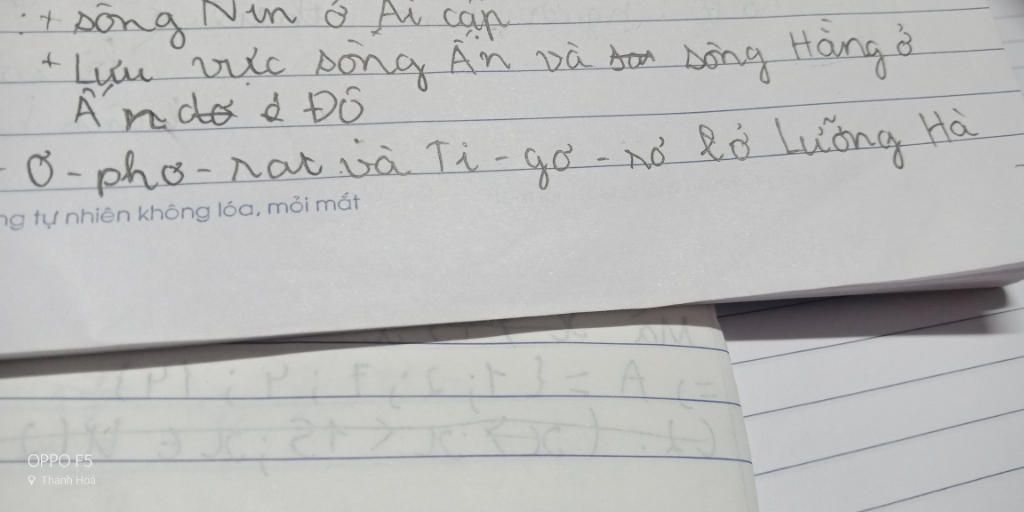 : + sông Nin ở Ai cập
+ Lưu vực sông Ấn và sông Hằng ở
Ấn Độ
- Ơ-phơ-rat và Ti-gơ-rơ ở Lưỡng Hà
ng tự nhiên không lóa, mỏi mắt
=) A = {1; 2; 7; 4; 14}
OPPO F5
Thanh Hoá